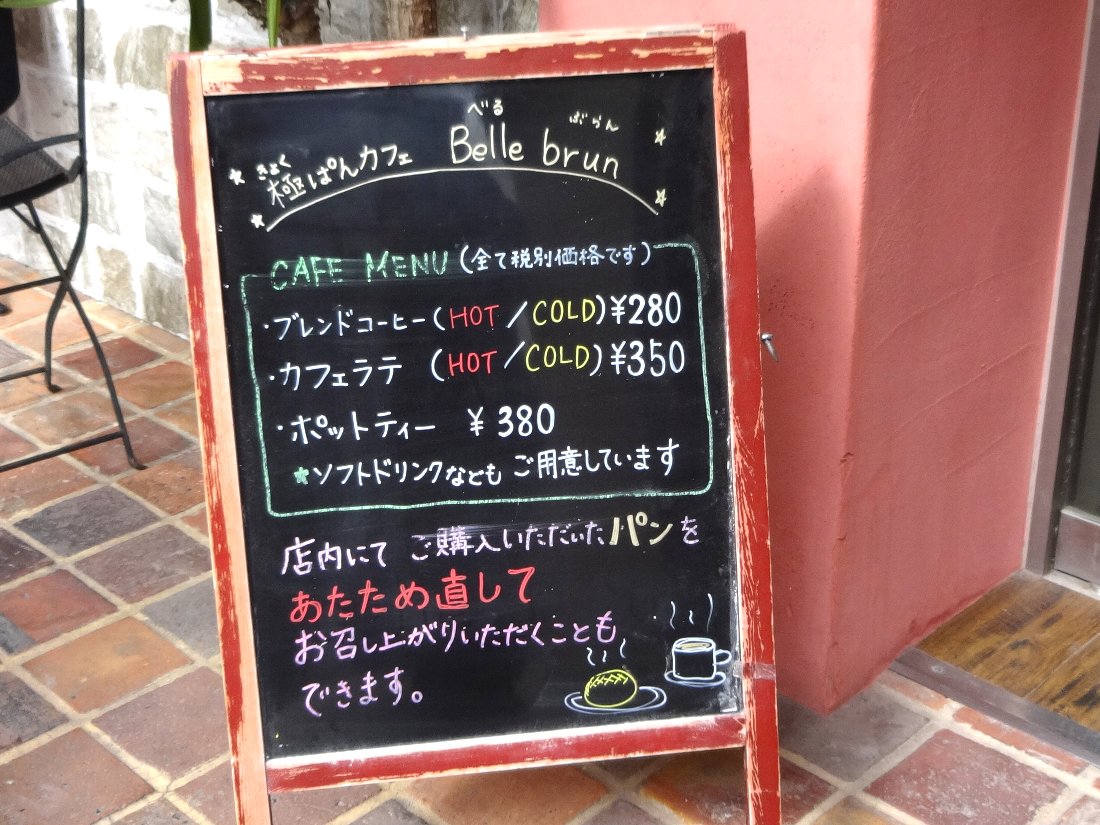 べる ばらん
きょく
極ぱんカフェ Belle brun
CAFE MENU (全て税別価格です)
・ブレンドコーヒー(HOT/COLD)¥280
・カフェラテ (HOT/COLD)¥350
・ポットティー ¥380
★ソフトドリンクなども ご用意しています
店内にて ご購入いただいたパンを
あたため直して
お召し上がりいただくことも
できます。